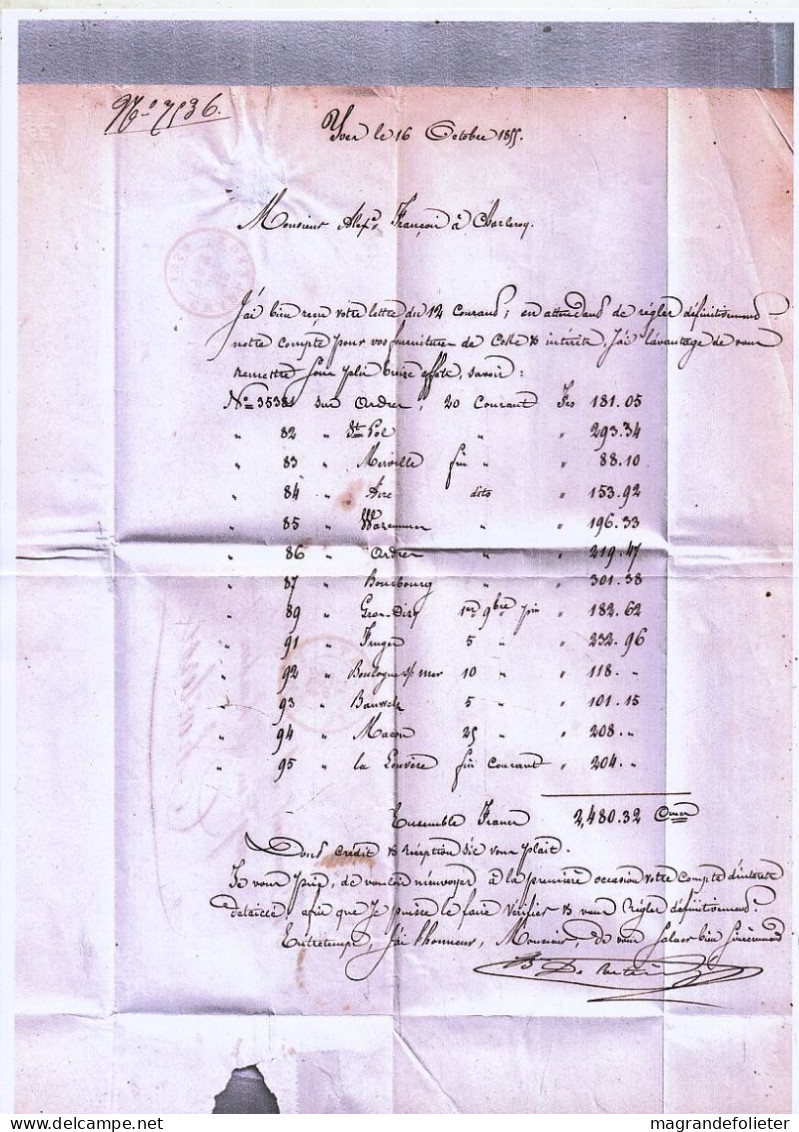 No 7536.
Yves le 16 Octobre 1855.
Monsieur Alexs François à Charleroy.
J'ai bien reçu votre lettre du 12 Courant; en attendant de régler définitivement
notre Compte pour vos fournitures de & intérêts, J'ai l'avantage de vous
remettre sous plis treize effets, savoir :
No 35381 sur Ordres, 20 Courant Frs 181.05
" 82 " St Pol " " 293.34
" 83 " Merville fin " " 88.10
" 84 " Aire dito " 153.92
" 85 " Waremmes " " 196.33
" 86 " Ordres " " 219.47
" 87 " Bourbourg " " 301.38
" 89 " 1er 9bre pin " 182.62
" 91 " Fruges 5 " " 232.96
" 92 " Boulogne s/ mer 10 " " 118. "
" 93 " 5 " " 101.15
" 94 " Macon 25 " " 208. "
" 95 " la Louvère fin Courant " 204. "
Ensemble Francs 2,480.32
Dont crédit & réception s'il vous plait.
Je vous prie, de vouloir m'envoyer à la première occasion votre Compte d'intérets
détaillé, afin que je puisse le faire vérifier & vous régler définitivement.
Entretemps, J'ai l'honneur, Monsieur, de vous saluer bien sincèrement
magrandefolieter